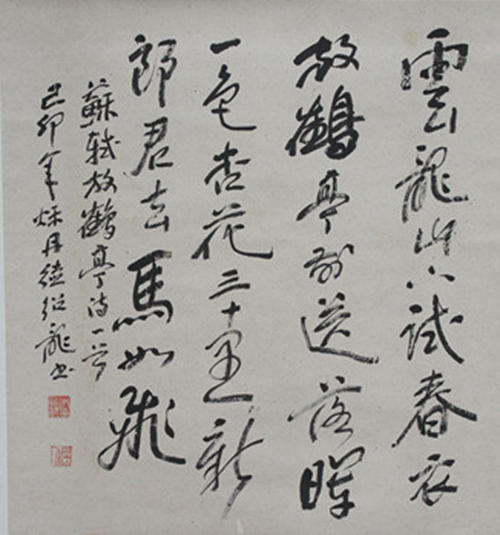 雲龍山下試春衣
放鶴亭前送落暉
一色杏花三十里新
郎君去馬如飛
蘇軾放鶴亭詩一首
己卯年秋月德紹龍書